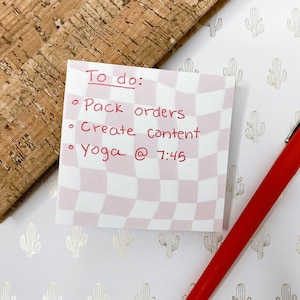 To do:
• Pack orders
• Create content
• Yoga @ 7:45